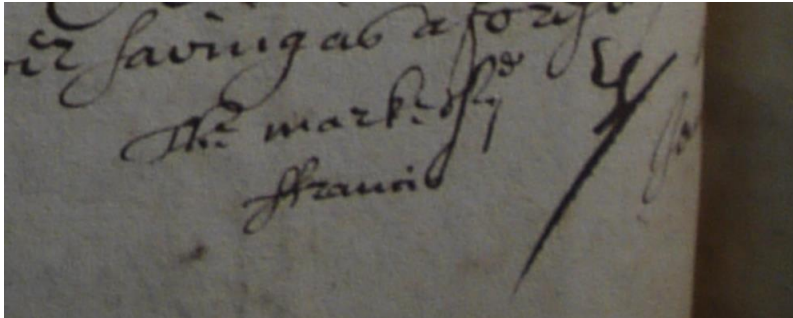 saving as aforesd
The marke of ye sd
ffrancis